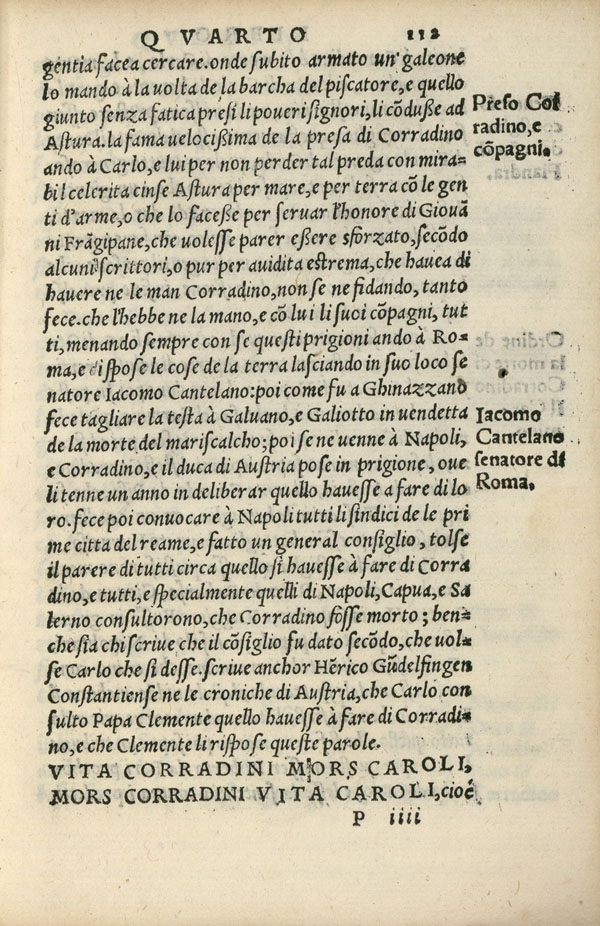 QVARTO 112
gentia facea cercare. onde subito armato un' galeone
lo mando à la uolta de la barcha del piscatore, e quello
giunto senza fatica presi li poueri signori, li cõduße ad
Astura. la fama uelocißima de la presa di Corradino
ando à Carlo, e lui per non perder tal preda con mira-
bil celerita cinse Astura per mare, e per terra cõ le gen
ti d'arme, o che lo faceße per seruar l'honore di Giouã
ni Frãgipane, che uolesse parer eßere sforzato, secõdo
alcuni scrittori, o pur per auidita estrema, che hauea di
hauere ne le man Corradino, non se ne fidando, tanto
fece. che l'hebbe ne la mano, e cõ lui li suoi cõpagni, tut
ti, menando sempre con se questi prigioni ando à Ro-
ma, e dispose le cose de la terra lasciando in suo loco se
natore Iacomo Cantelano: poi come fu a Ghinazzano
fece tagliare la testa à Galuano, e Galiotto in uendetta
de la morte del mariscalcho; poi se ne uenne à Napoli,
e Corradino, e il duca di Austria pose in prigione, oue
li tenne un anno in deliberar quello hauesse a fare di lo
ro. fece poi conuocare à Napoli tutti li sindici de le pri
me citta del reame, e fatto un general consiglio, tolse
il parere di tutti circa quello si hauesse à fare di Corra
dino, e tutti, e specialmente quelli di Napoli, Capua, e Sa
lerno consultorono, che Corradino fosse morto; ben-
che sia chi scriue che il cõsiglio fu dato secõdo, che uol-
se Carlo che si desse. scriue anchor Hẽrico Gũdelfingen
Constantiense ne le croniche di Austria, che Carlo con
sulto Papa Clemente quello hauesse à fare di Corradi-
no, e che Clemente li rispose queste parole.
VITA CORRADINI MORS CAROLI,
MORS CORRADINI VITA CAROLI, cioè
P iiii
Preso Cor
radino, e
cõpagni.
Iacomo
Cantelano
senatore di
Roma.